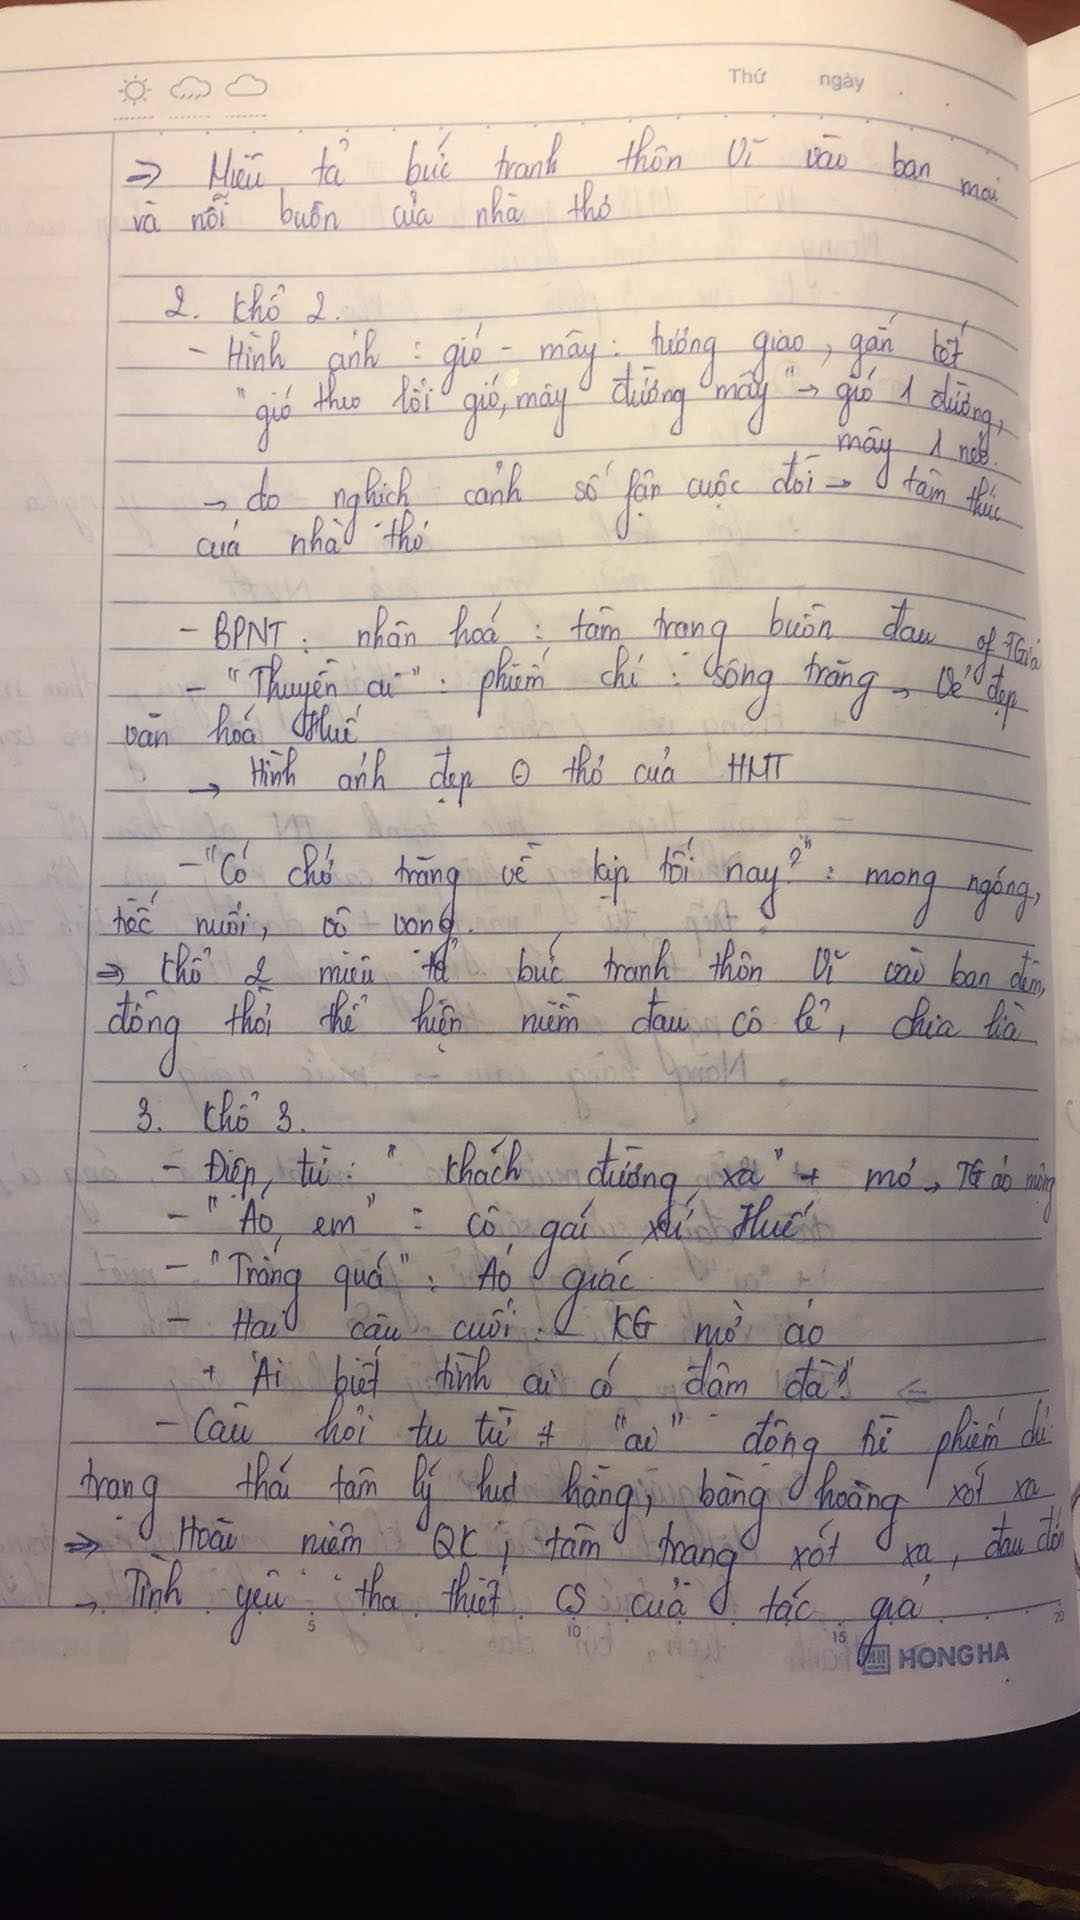 Thứ ngày
=> Miêu tả bức tranh thôn Vĩ vào ban mai
và nỗi buồn của nhà thơ
2. Khổ 2.
- Hình ảnh : gió - mây : tương giao, gắn kết
"gió theo lối gió, mây đường mây" → gió 1 đường,
mây 1 nẻo.
→ do nghịch cảnh số fận cuộc đời → tâm thức
của nhà thơ
- BPNT : nhân hoá : tâm trạng buồn đau of TGiả
- "Thuyền ai" : phiếm chỉ : sông trăng → vẻ đẹp
văn hoá Huế
→ Hình ảnh đẹp thơ của HMT
- "Có chở trăng về kịp tối nay?" : mong ngóng,
tiếc nuối, vô vọng.
=> Khổ 2 miêu tả bức tranh thôn Vĩ vào ban đêm,
đồng thời thể hiện niềm đau cô lẻ, chia lìa
3. Khổ 3.
- Điệp từ : "Khách đường xa" + mơ → TG ảo mộng
- "Áo em" : cô gái xứ Huế
- "Trắng quá" : Ảo giác
- Hai câu cuối - KG mờ ảo
+ "Ai biết tình ai có đậm đà?" ←
- Câu hỏi tu từ + "ai" - đồng hề phiếm chỉ
trạng thái tâm lý hụt hẫng, bàng hoàng xót xa
=> Hoài niệm QK, tâm trạng xót xa, đau đớn
→ Tình yêu tha thiết CS của tác giả
5 10 15 20
HONG HA